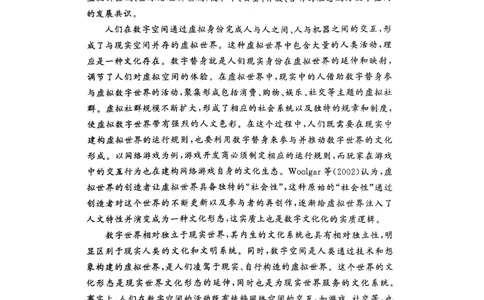 的发展共识。
人们在数字空间通过虚拟身份完成人与人之间、人与机器之间的交互,形
成了与现实空间并存的虚拟世界。这种虚拟世界中包含大量的人类活动,理
应是一种文化存在。数字替身就是人们现实身份在虚拟世界的延伸和映射,
调节了人们对虚拟空间的体验。在虚拟世界中,现实中的人借助数字替身参
与虚拟数字世界的活动,聚集形成包括消费、购物、娱乐、社交等主题的虚拟社
群。虚拟社群规模不断扩大,形成了相应的社会系统以及独特的规章和制度,
使虚拟数字世界带有强烈的人文色彩。在这个过程中,人们既需要在现实中
建构虚拟世界的运行规则,也要利用数字替身来参与并推动数字世界的文化
形成。以网络游戏为例,游戏开发商必须制定相应的运行规则,而玩家在游戏
中的交互行为也在建构网络游戏自身的文化生态。Woolgar 等(2002)认为,虚
拟世界的创造者让虚拟世界具备独特的“社会性”,这种原始的“社会性”通过
创造者对这个世界的不断更新以及参与者的再创作,逐渐给虚拟世界注入了
人文特性并演变成为一种文化形态,这实质上也是数字文化化的实质逻辑。
数字世界相对独立于现实世界,其内生的文化系统也具有相对独立性,明
显区别于现实人类的文化和文明系统。同时,数字空间是人类通过技术和想
象构建的虚拟世界,是人们凌驾于现实、自行构造的虚拟世界。这个世界的文
化形态是现实世界文化形态的延伸,同时也是为现实世界服务的文化系统。